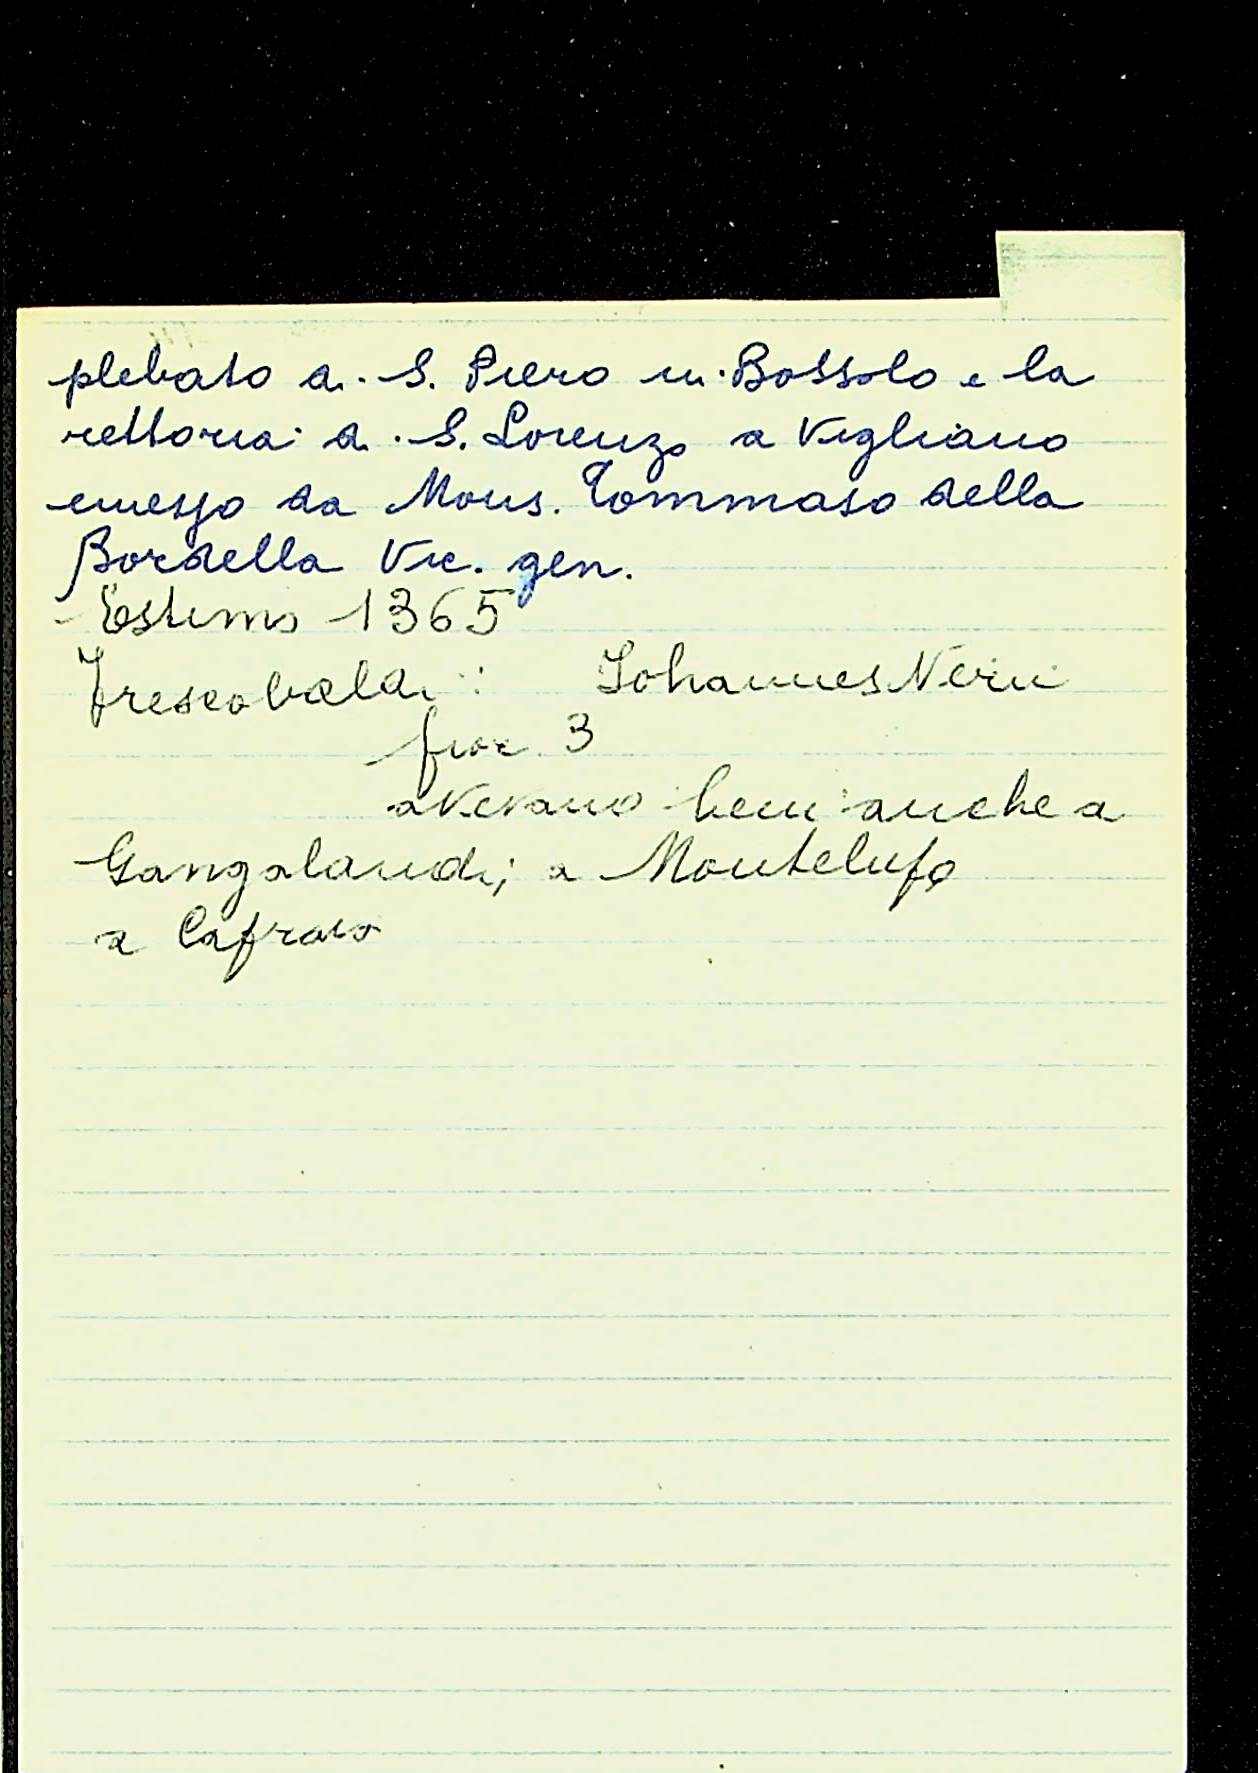 plebato di S. Piero in Bossolo e la
rettoria di S. Lorenzo a Vigliano
emesso da Mons. Tommaso della
Bordella Vic. gen.
- Estimo 1365
Frescobaldi: Johannes Neri
fior. 3
avevano beni anche a
Gangalandi; a Montelupo
a Cafraio